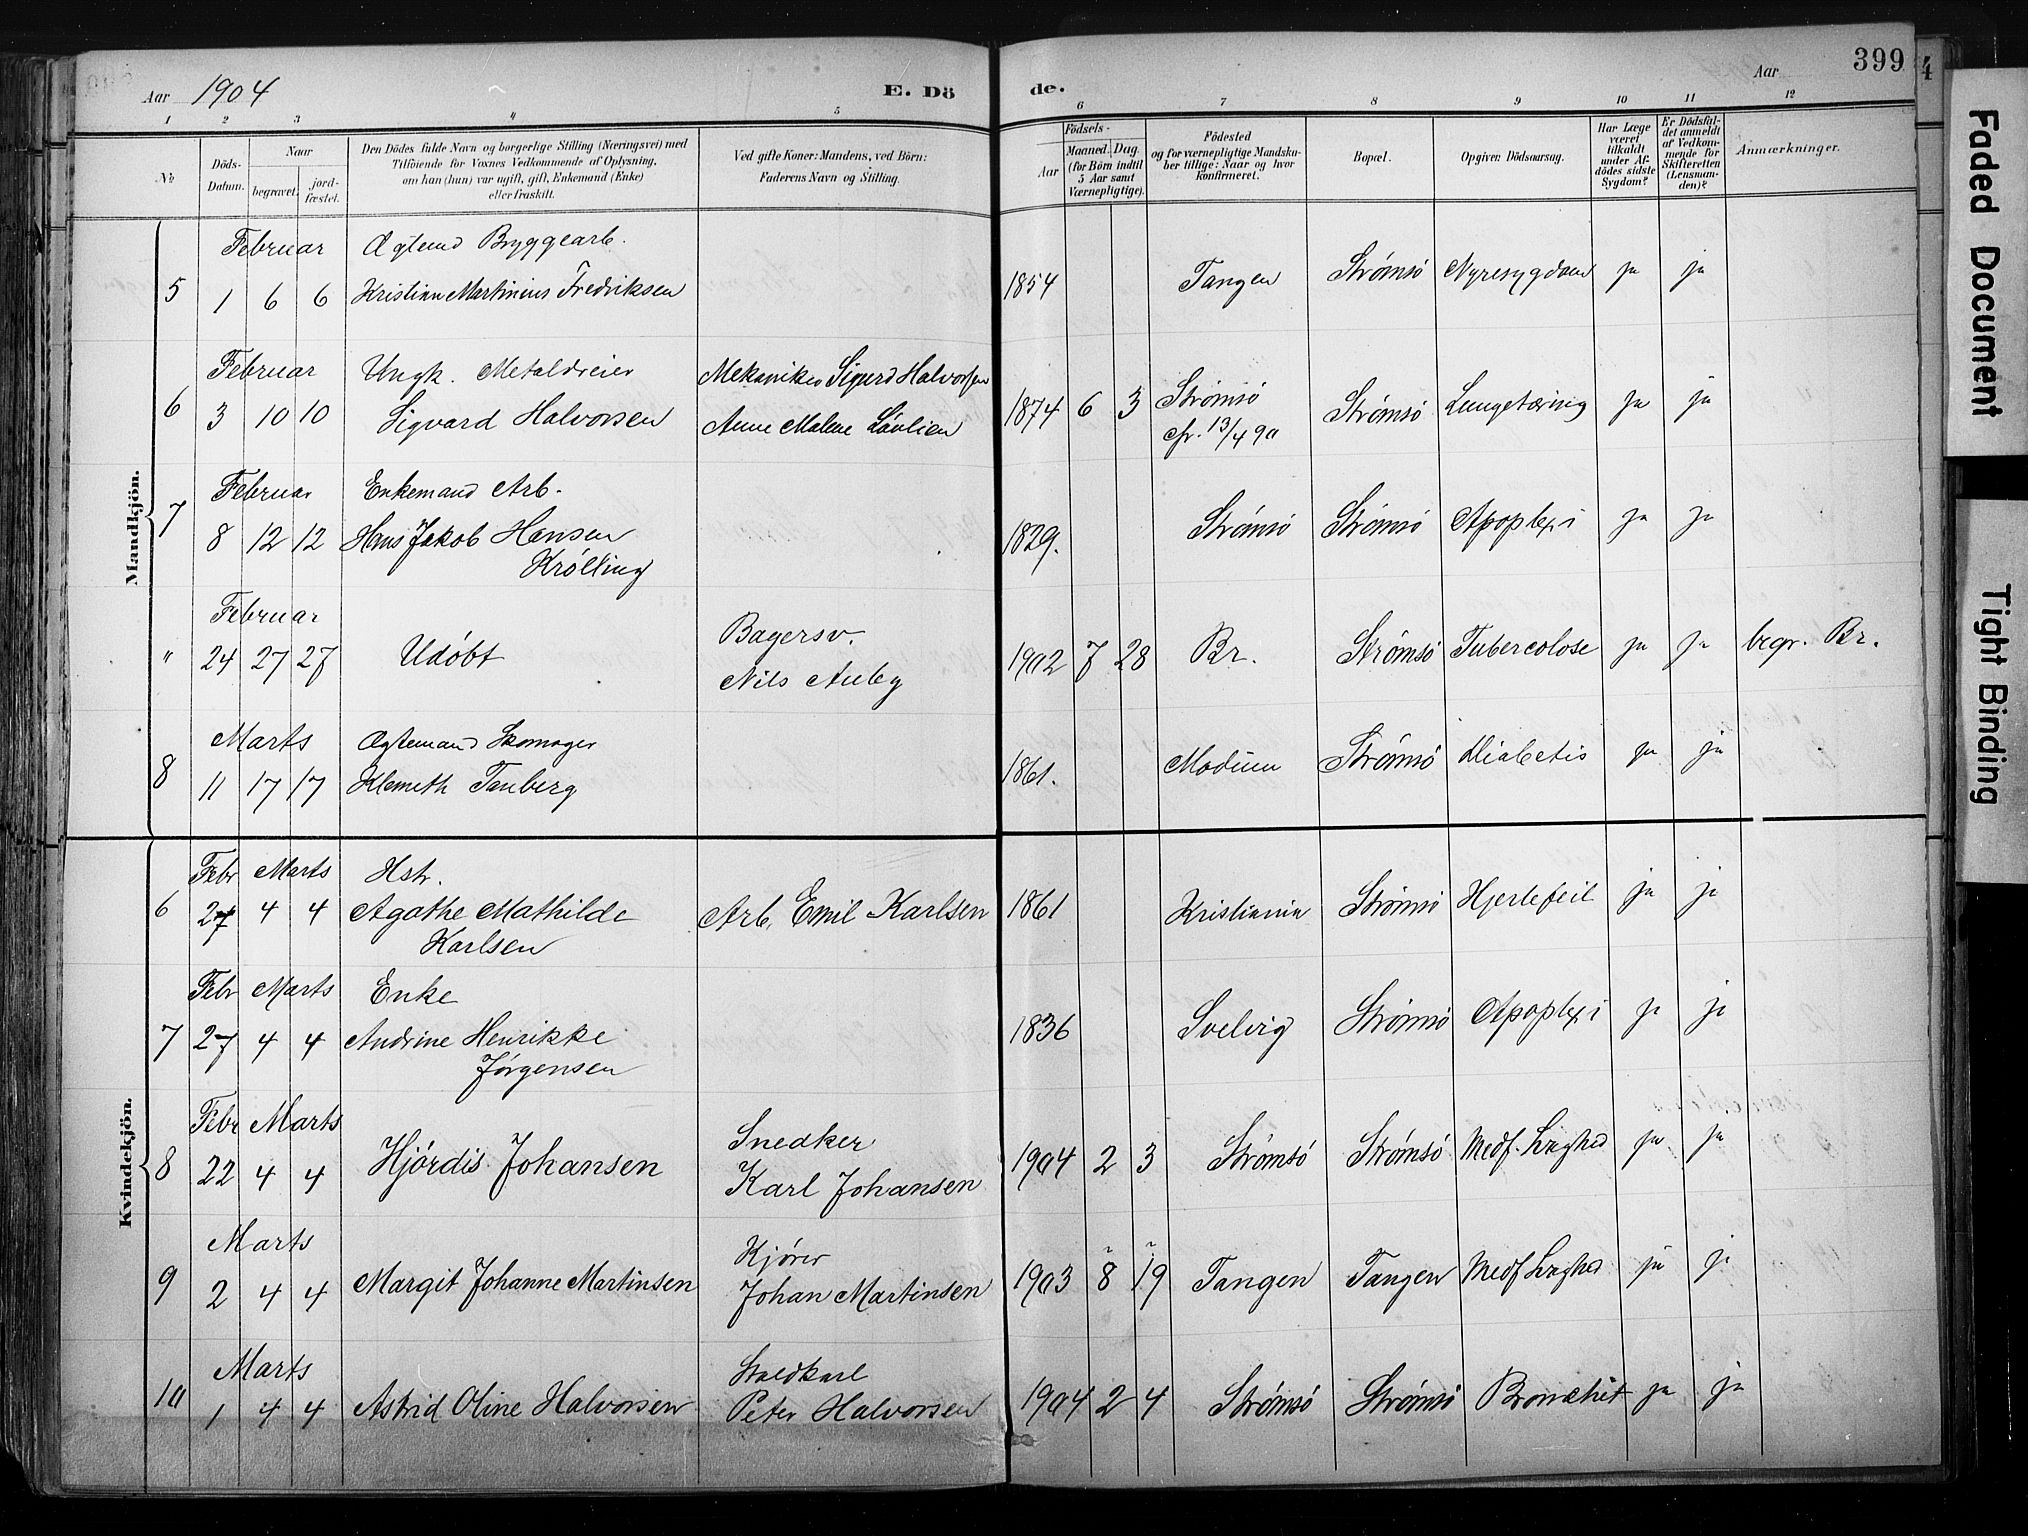 Aar 1904 E. Döde. Aar 399
1 2 3 4 5 6 7 8 9 10 11 12
№
Döds-Datum.
Naar
begravet.
jord-fæstet.
Den Dödes fulde Navn og borgerlige Stilling (Næringsvei) med
Tilföiende for Voxnes Vedkommende af Oplysning,
om han (hun) var ugift, gift, Enkemand (Enke)
eller fraskilt.
Ved gifte Koner: Mandens, ved Börn:
Faderens Navn og Stilling.
Födsels-
Aar
Maaned. Dag.
(for Börn indtil
5 Aar samt
Værnepligtige).
Födested
og for værnepligtige Mandska-
ber tillige: Naar og hvor
konfirmeret.
Bopæl.
Opgiven Dödsaarsag.
Har Læge
været
tilkaldt
under Af-
dödes sidste
Sygdom?
Er Dödsfal-
det anmeldt
af Vedkom-
mende for
Skifteretten
(Lensman-
den)?
Anmærkninger.
Mandkjön.
Februar Ægtemd Bryggearb.
5 1 6 6 Kristian Martinius Fredriksen 1854 Tangen Strømsö Nyresygdom ja ja
Februar Ungk. Metaldreier Mekaniker Sigurd Halvorsen
6 3 10 10 Sigvard Halvorsen Anne Malene Lövlien 1874 6 3 Strömsö Strømsö Lungetæring ja ja
cfr. 13/4 90
Februar Enkemand Arb.
7 8 12 12 Hans Jakob Hansen 1829. Strømsö Strømsö Apoplexi ja ja
Krölling
Februar Bagersv.
" 24 27 27 Udöbt Nils Auby 1902 7 28 Br. Strømsö Tubercolose ja ja begr. Br.
Marts Ægtemand Skomager
8 11 17 17 Klemeth Tanberg 1861. Modum Strømsö Diabetis ja ja
Kvindekjön.
Febr Marts Hstr.
6 27 4 4 Agathe Mathilde Arb. Emil Karlsen 1861 Kristiania Strømsö Hjertefeil ja ja
Karlsen
Febr Marts Enke
7 27 4 4 Andrine Henrikke 1836 Svelvig Strømsö Apoplexi ja ja
Jörgensen
Febr Marts Snedker
8 22 4 4 Hjördis Johansen Karl Johansen 1904 2 3 Strømsö Strømsö Medf. Svaghed ja ja
Marts Kjörer
9 2 4 4 Margit Johanne Martinsen Johan Martinsen 1903 8 19 Tangen Tangen Medf Svaghed ja ja
Marts Staldkarl
10 1 4 4 Astrid Oline Halvorsen Peter Halvorsen 1904 2 4 Strømsö Strømsö Bronchit ja ja
4
Faded Document
Tight Binding